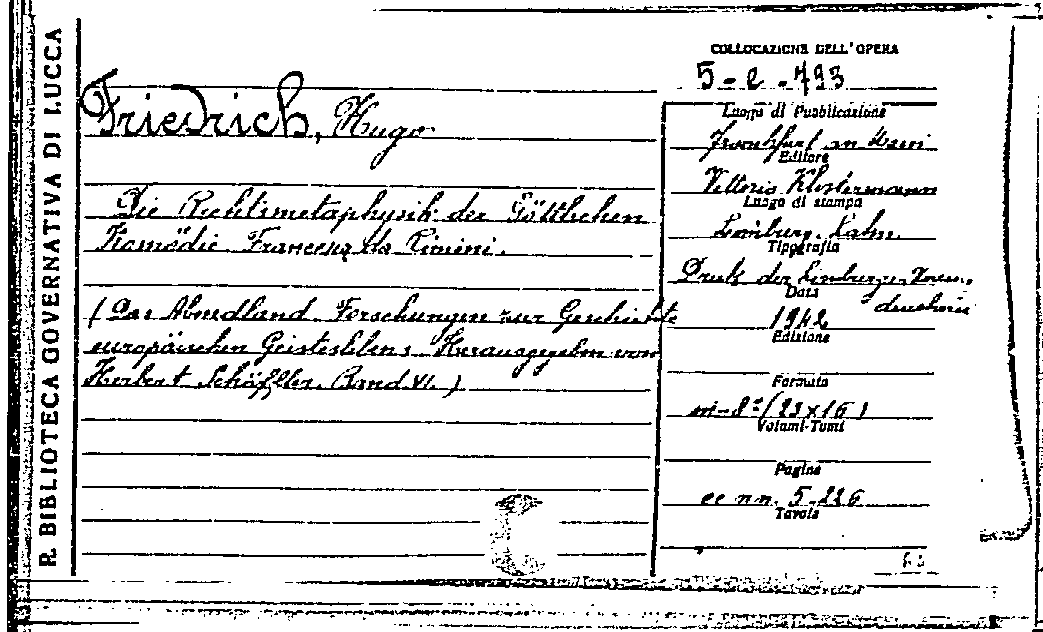 R. BIBLIOTECA GOVERNATIVA DI LUCCA
Friedrich, Hugo
Die Rechtsmetaphysik der Göttlichen
Komödie. Francesca da Rimini.
(Das Abendland Forschungen zur Geschichte
europäischen Geisteslebens Herausgegeben von
Herbert Schöffler. Band VI.)
COLLOCAZIONE DELL'OPERA
5-e-793
Luogo di Pubblicazione
Frankfurt am Main
Editore
Vittorio Klostermann
Luogo di stampa
Limburg. Lahn.
Tipografia
Druck der Limburger Verein.
druckerei
Data
1942
Edizione
Formato
in-8° (23x16)
Volumi-Tomi
Pagine
cc nn. 5-226
Tavole